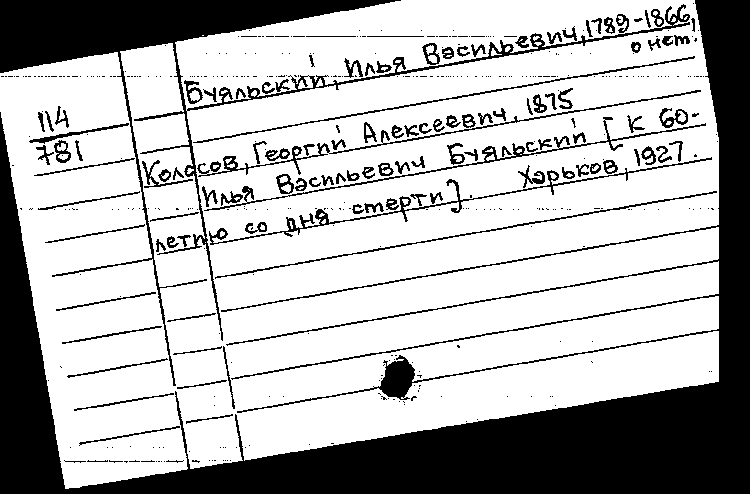 Буяльский, Илья Васильевич, 1789-1866,
о нем.
114
781
Колосов, Георгий Алексеевич. 1875
Илья Васильевич Буяльский [К 60-
летию со дня смерти]. Харьков, 1927.